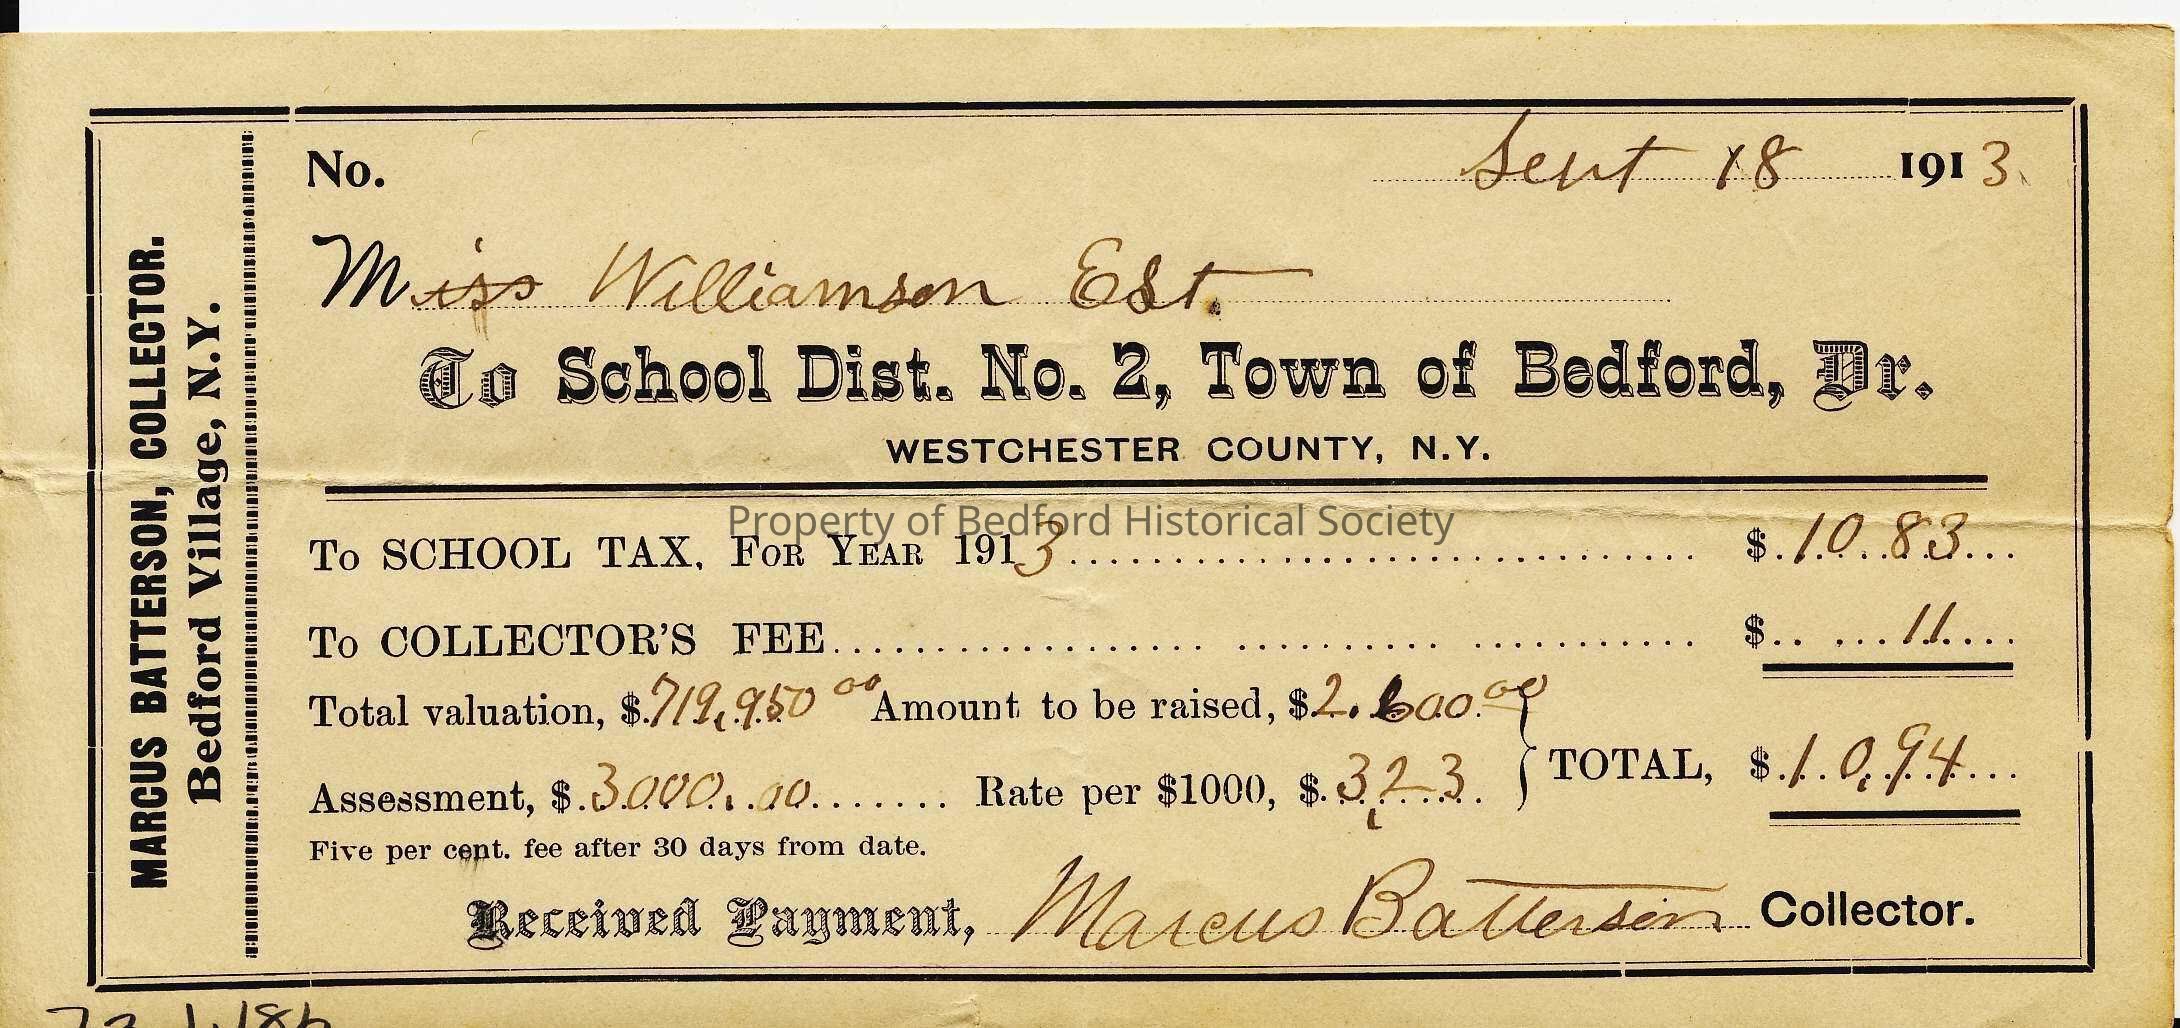 MARCUS BATTERSON, COLLECTOR.
Bedford Village, N.Y.
No. Sept 18 1913
Miss Williamson Est.
To School Dist. No. 2, Town of Bedford, Dr.
WESTCHESTER COUNTY, N.Y.
Property of Bedford Historical Society
To SCHOOL TAX, FOR YEAR 1913 $ 10.83
To COLLECTOR'S FEE $ 11
Total valuation, $ 719,950 00 Amount to be raised, $ 2,600.00
Assessment, $ 3000.00 Rate per $1000, $ 3,23 TOTAL, $ 10,94
Five per cent. fee after 30 days from date.
Received Payment, Marcus Batterson Collector.